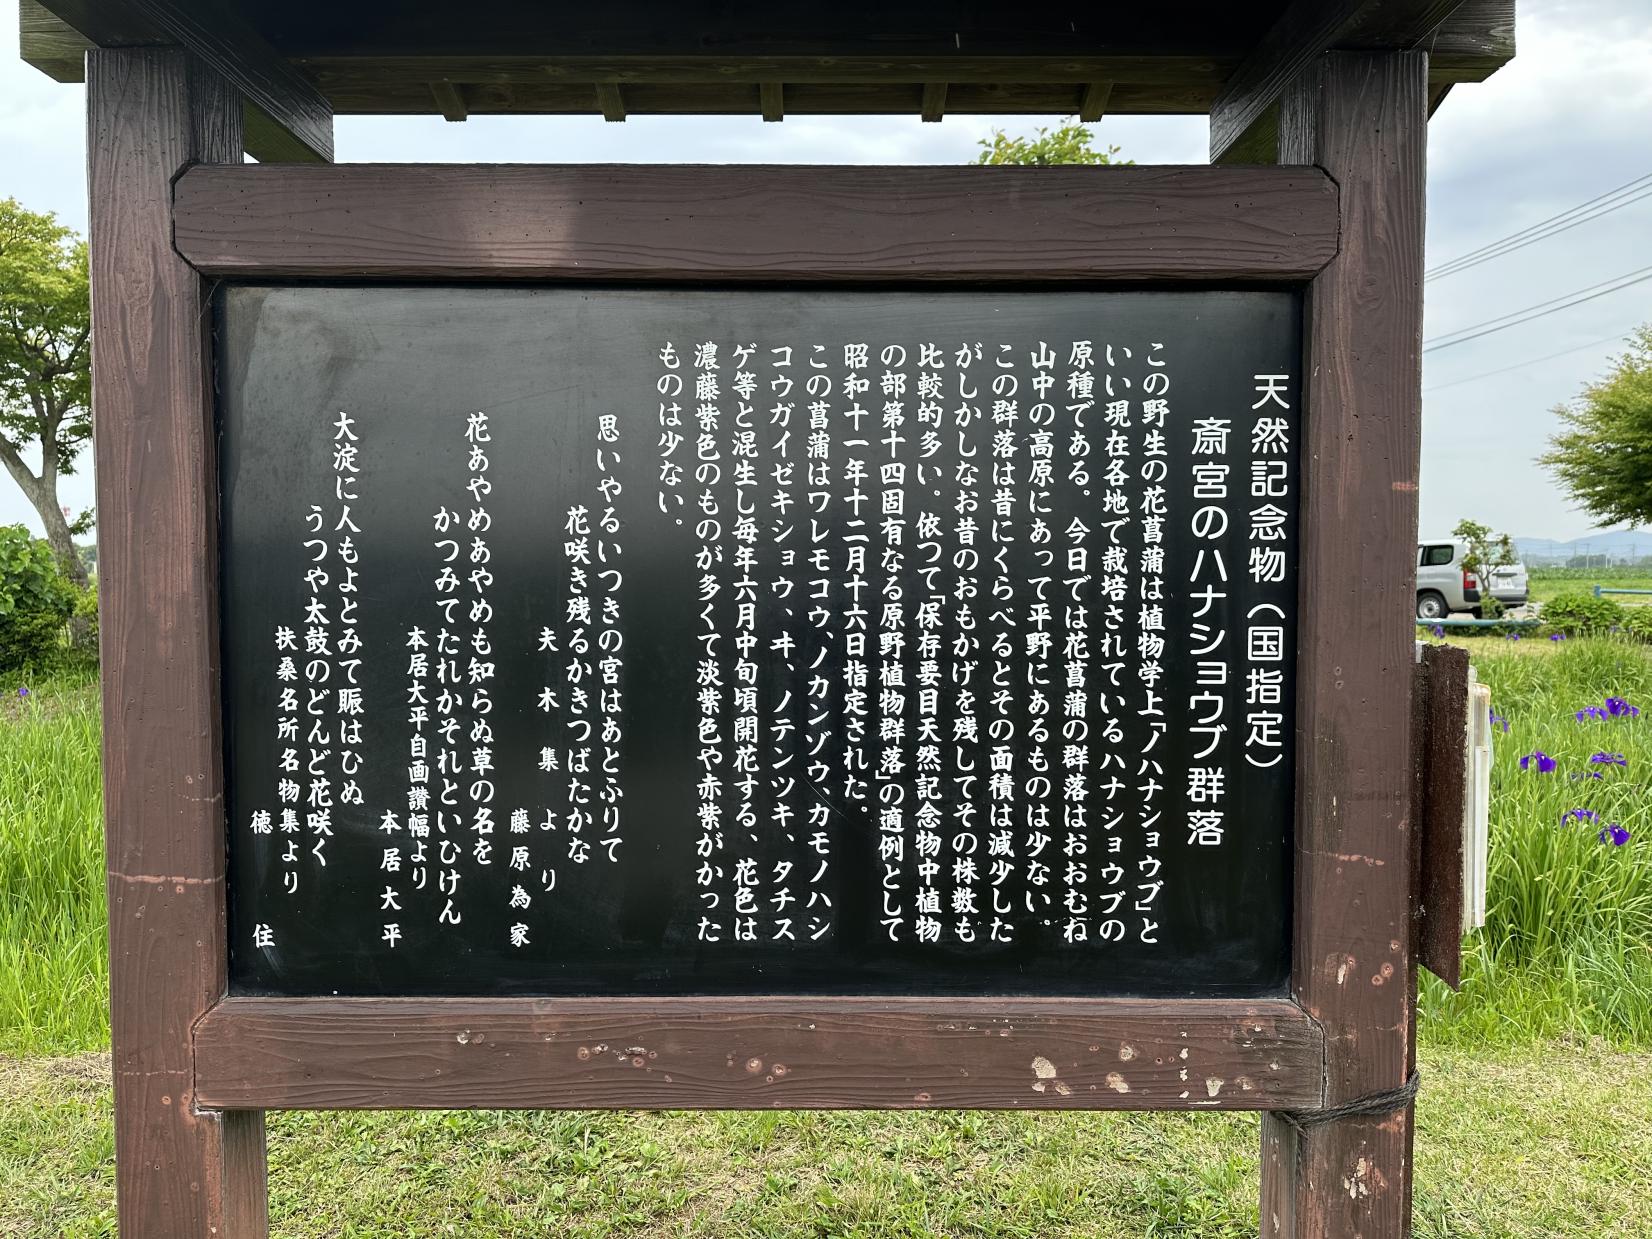 天然記念物（国指定）
斎宮のハナショウブ群落
この野生の花菖蒲は植物学上「ノハナショウブ」と
いい現在各地で栽培されているハナショウブの
原種である。今日では花菖蒲の群落はおおむね
山中の高原にあって平野にあるものは少ない。
この群落は昔にくらべるとその面積は減少した
がしかしなお昔のおもかげを残してその株数も
比較的多い。依つて「保存要目天然記念物中植物
の部第十四固有なる原野植物群落」の適例として
昭和十一年十二月十六日指定された。
この菖蒲はワレモコウ、ノカンゾウ、カモノハシ
コウガイゼキショウ、ヰ、ノテンツキ、タチス
ゲ等と混生し毎年六月中旬頃開花する、花色は
濃藤紫色のものが多くて淡紫色や赤紫がかった
ものは少ない。
思いやるいつきの宮はあとふりて
花咲き残るかきつばたかな
夫木集より
藤原為家
花あやめあやめも知らぬ草の名を
かつみてたれかそれといひけん
本居大平自画讃幅より
本居大平
大淀に人もよとみて賑はひぬ
うつや太鼓のどんど花咲く
扶桑名所名物集より
徳住